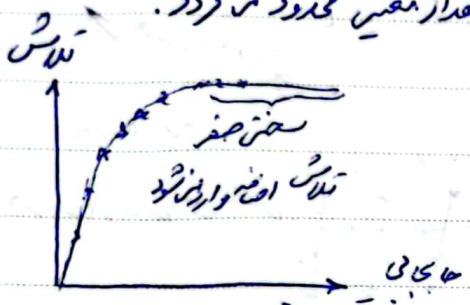 مقدار معین محدود می گردد.
تلاش
سختی صفر
تلاش اضافه وارد نمی شود
جابجایی